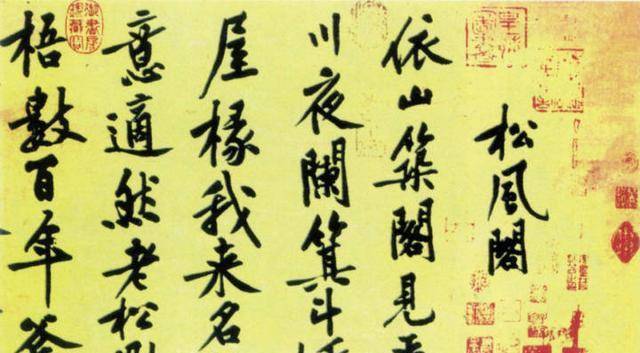 松風閣
依山築閣見
川夜闌箕斗
屋椽我来名
意適然老松
梧數百年